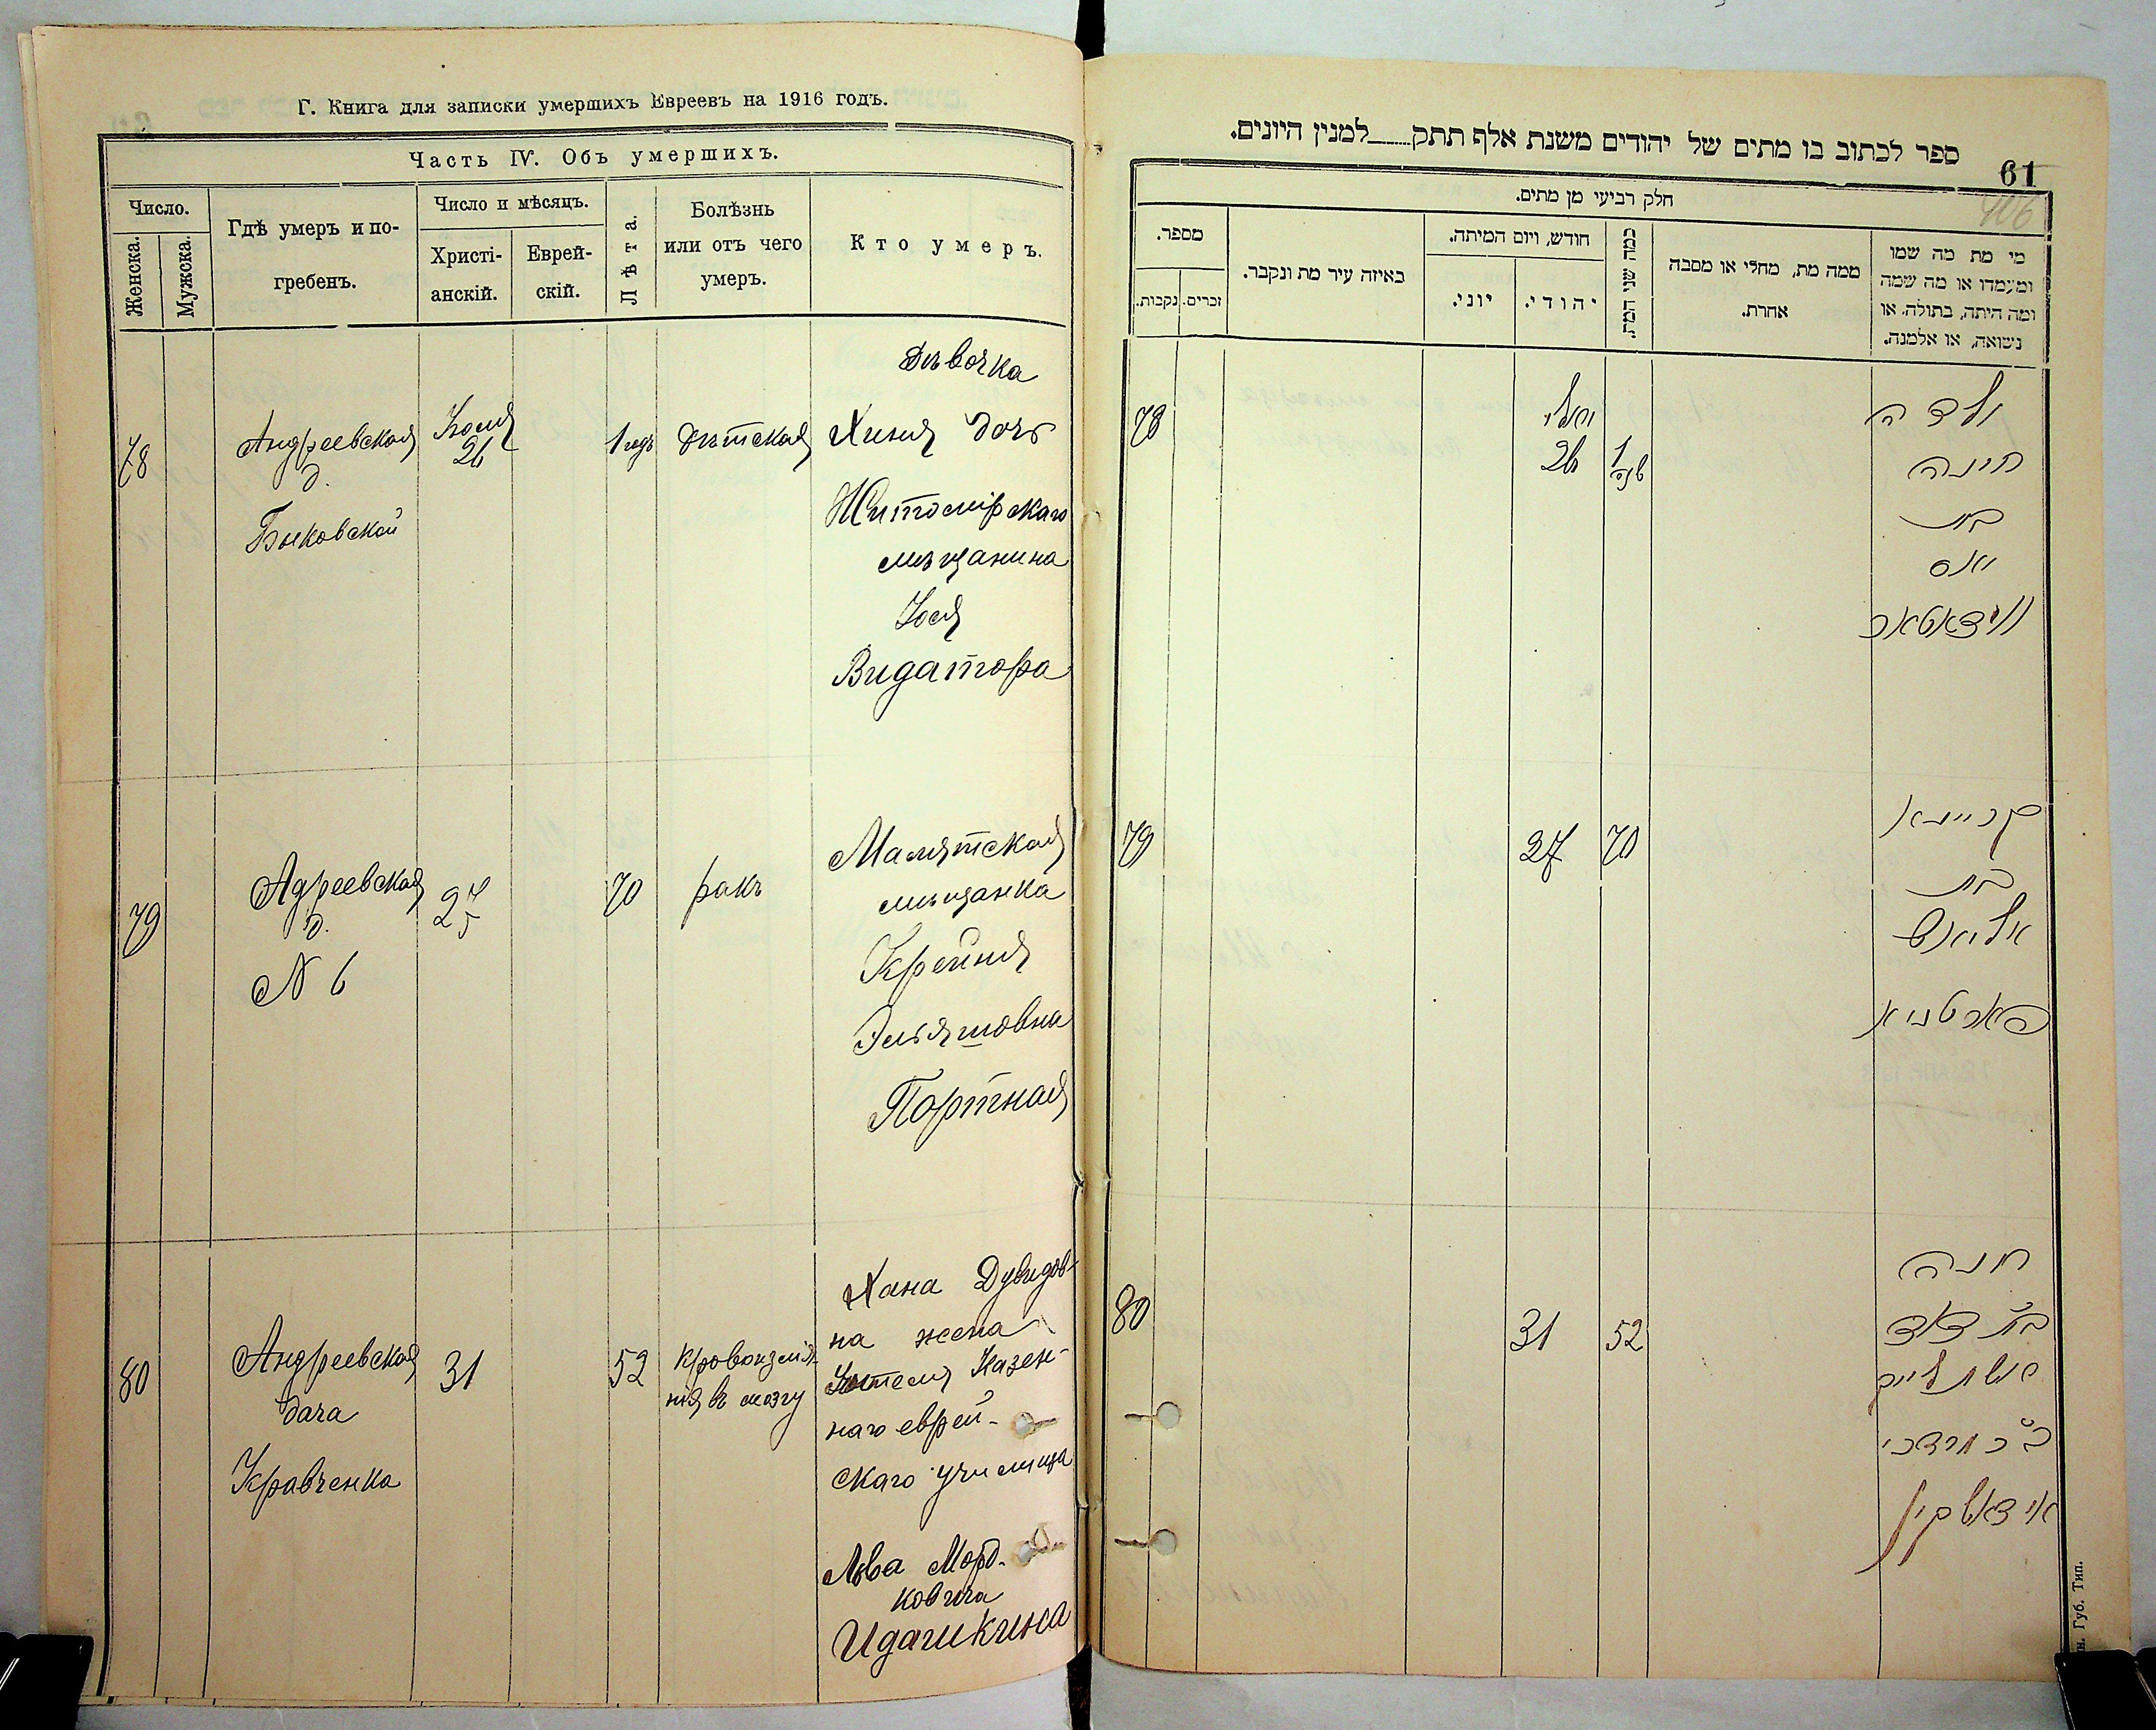 Г. Книга для записки умершихъ Евреевъ на 1916 годъ.
Часть IV. Объ умершихъ.
Число.
Женска.
Мужска.
Гдѣ умеръ и по-
гребенъ.
Число и мѣсяцъ.
Христі-
анскій.
Еврей-
скій.
Лѣта.
Болѣзнь
или отъ чего
умеръ.
Кто умеръ.
78
Андреевская
д.
Быковской
Июля
26
1 годъ
Дѣтская
Дѣвочка
Хиня дочь
Житомірскаго
мѣщанина
Іося
Видатора
79
Адреевская
д.
N 6
27
70
ракъ
мѣщанка
Крейня
Эльяшовна
Портная
80
Андреевская
дача
Кравченка
31
52
Кровоизлія-
нія въ мозгу
Хана Дувидов-
на жена
Учителя Казен-
наго еврей-
скаго училища
Льва Морд-
ковича
Идашкина
ספר לכתוב בו מתים של יהודים משנת אלף תתק___למנין היונים.
61
106
חלק רביעי מן מתים.
מספר.
נקבות.
זכרים.
באיזה עיר מת ונקבר.
חודש, ויום המיתה.
יוני.
יהודי.
כמה שני המת.
ממה מת, מחלי או מסבה
אחרת.
מי מת מה שמו
ומעמדו או מה שמה
ומה היתה, בתולה, או
נשואה, או אלמנה.
78
יולי
26
1
שנה
ילדה
חינה
בת
יאס
ווידאטאר
79
27
70
קריינא
בת
אליאש
פארטניא
80
31
52
חנה
בת דוד
אשת לייב
ב״ר מרדכי
אידאשקין
н. Губ. Тип.